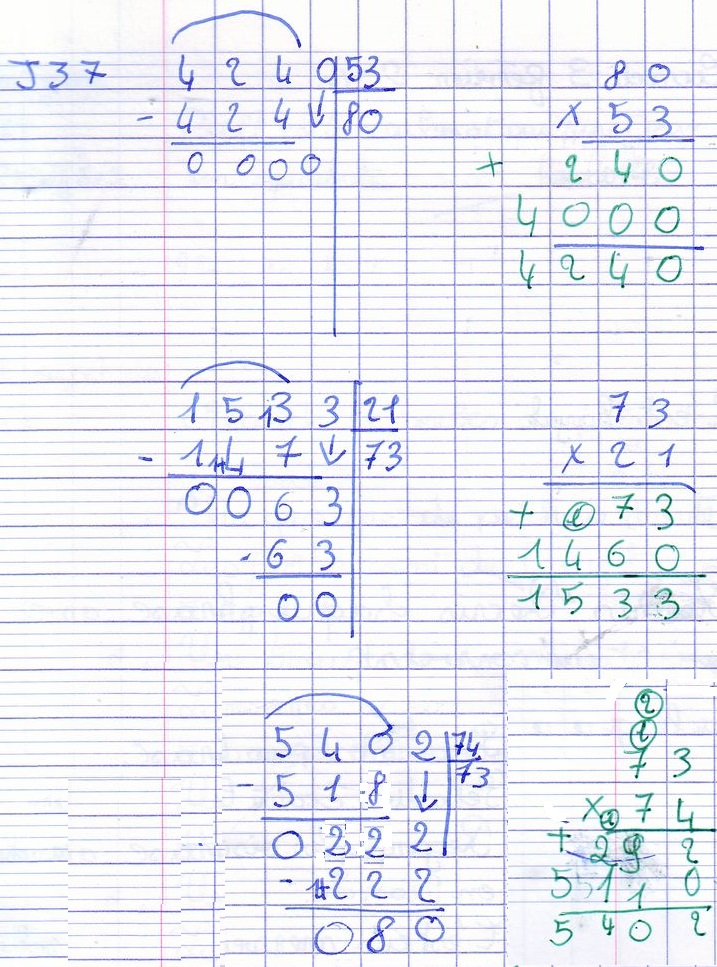 J37
4 2 4 0 53
- 4 2 4 ↓ 80
0 0 0 0
8 0
x 5 3
+ 2 4 0
4 0 0 0
4 2 4 0
1 5 13 3 21
- 1 1+4 7 ↓ 73
0 0 6 3
- 6 3
0 0
7 3
x 2 1
+ 7 3
1 4 6 0
1 5 3 3
5 4 0 2 74
- 5 1 8 ↓ 73
0 2 2 2
- 2 2 2
0 8 0
2
1
7 3
x 7 4
+ 2 9 2
5 1 1 0
5 4 0 2